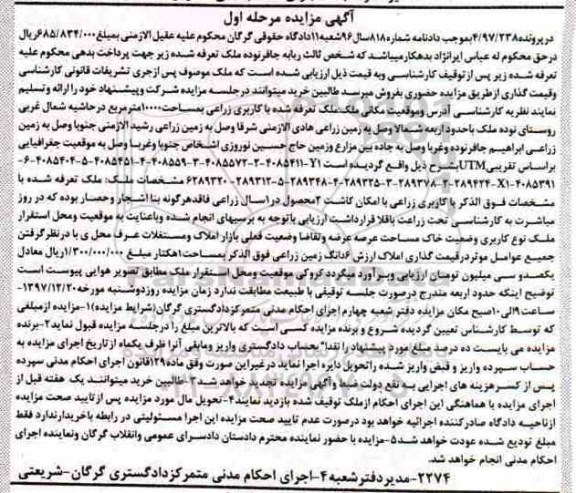 آگهی مزایده مرحله اول
در پرونده ۴/۹۷/۲۳۸بموجب دادنامه شماره۸۱۸سال۹۶شعبه۱۱دادگاه حقوقی گرگان محکوم علیه عقیل الازمنی بمبلغ۶۸۵/۸۳۴/۰۰۰ریال
درحق محکوم له عباس ایرانژاد بدهکارمیباشد که شخص ثالث ربابه جافرنوده ملک تعرفه شده زیر جهت پرداخت بدهی محکوم علیه
تعرفه شده زیر پس ازتوقیف کارشناسی وبه قیمت ذیل ارزیابی شده است که ملک موصوف پس ازجری تشریفات قانونی کارشناسی
وقیمت گذاری ازطریق مزایده حضوری بفروش میرسد طالبین خرید میتوانند درجلسه مزایده شرکت وپیشنهاد خود را ارائه وتسلیم
نمایند نظریه کارشناسی آدرس وموقعیت مکانی ملک:ملک تعرفه شده با کاربری زراعی بمساحت۱۰۰۰۰مترمربع درحاشیه شمال غربی
روستای نوده ملک باحدود اربعه شمالا وصل به زمین زراعی هادی الازمنی شرقا وصل به زمین زراعی رشید الازمنی جنوبا وصل به زمین
زراعی ابراهیم جافرنوده وغربا وصل به جاده بین مزارع وزمین حاج حسین نوروزی اشخاص جنوبا وغربا وصل به موقعیت جغرافیایی
براساس تقریبیUTMبشرح ذیل واقع گردیده است ۴۰۸۵۴۱۱-Y۱-۲-۴۰۸۵۵۷۲-۳-۴۰۸۵۵۹-۴-۴۰۸۵۴۵۱-۵-۴۰۸۵۴۰۴-۶
۴۰۸۵۳۹۱-X۱-۲۸۹۴۲۴-۲-۲۸۹۳۷۸-۳-۲۸۹۳۲۵-۴-۲۸۹۳۴۸-۵-۲۸۹۳۱۲-۶۲۸۹۳۲۰ مشخصات ملک: ملک تعرفه شده با
مشخصات فوق الذکر با کاربری زراعی با امکان کاشت ۲محصول در۱سال زراعی فاقدهرگونه بنا اشجار وحصار بوده که در روز
مباشرت به کارشناسی تحت زراعت باقلا قرارداشت ارزیابی باتوجه به بررسیهای انجام شده وباعنایت به موقعیت ومحل استقرار
ملک نوع کاربری وضعیت خاک مساحت عرصه عرضه وتقاضا وضعیت فعلی بازار املاک ومستغلات عرف محل ی با درنظرگرفتن
جمیع عوامل موثردرقیمت گذاری املاک ارزش ۶دانگ زمین زراعی فوق الذکر بمساحت۱هکتار مبلغ ۱/۳۰۰/۰۰۰/۰۰۰ریال معادل
یکصدو سی میلیون تومان ارزیابی وبرآورد میگردد کروکی موقعیت ومحل استقرار ملک مطابق تصویر هوایی پیوست است
توضیح اینکه حدود اربعه مندرج درصورت جلسه توقیفی با طبیعت مطابقت ندارد زمان مزایده روزدوشنبه مورخه ۱۳۹۷/۱۲/۲۰-
ساعت۹الی۱۰صبح مکان مزایده دفتر شعبه چهارم اجرای احکام مدنی متمرکزدادگستری گرگان(شرایط مزایده)۱-مزایده ازمبلغی
که توسط کارشناس تعیین گردیده شروع و برنده مزایده کسی است که بالاترین مبلغ را درجلسه مزایده قبول نماید۲-برنده
مزایده می بایست ده درصد مبلغ مورد پیشنهاد را نقدا" بحساب دادگستری واریز ومابقی آنرا ظرف یکماه ازتاریخ اجرای مزایده به
حساب سپرده واریز و قبض واریز شده راتحویل دایره اجرا نماید درغیراین صورت وفق ماده۱۲۹قانون اجرای احکام مدنی سپرده
پس از کسرهزینه های اجرایی به نفع دولت ضبط وآگهی مزایده تجدید خواهد شد۳-طالبین خرید میتوانند یک هفته قبل از
اجرای مزایده با هماهنگی این اجرای احکام ازملک توقیف شده بازدید نمایند۴-تحویل مال مورد مزایده پس ازتایید صحت مزایده
ازناحیه دادگاه صادرکننده اجرائیه خواهد بود درصورت عدم تایید صحت مزایده این اجرا مسئولیتی در رابطه باخریدارندارد فقط
مبلغ تودیع شده عودت خواهد شد۵-مزایده با حضور نماینده محترم دادستان دادسرای عمومی وانقلاب گرگان ونماینده اجرای
احکام مدنی انجام خواهد شد.
۲۲۷۴-مدیردفترشعبه۴-اجرای احکام مدنی متمرکزدادگستری گرگان-شریعتی